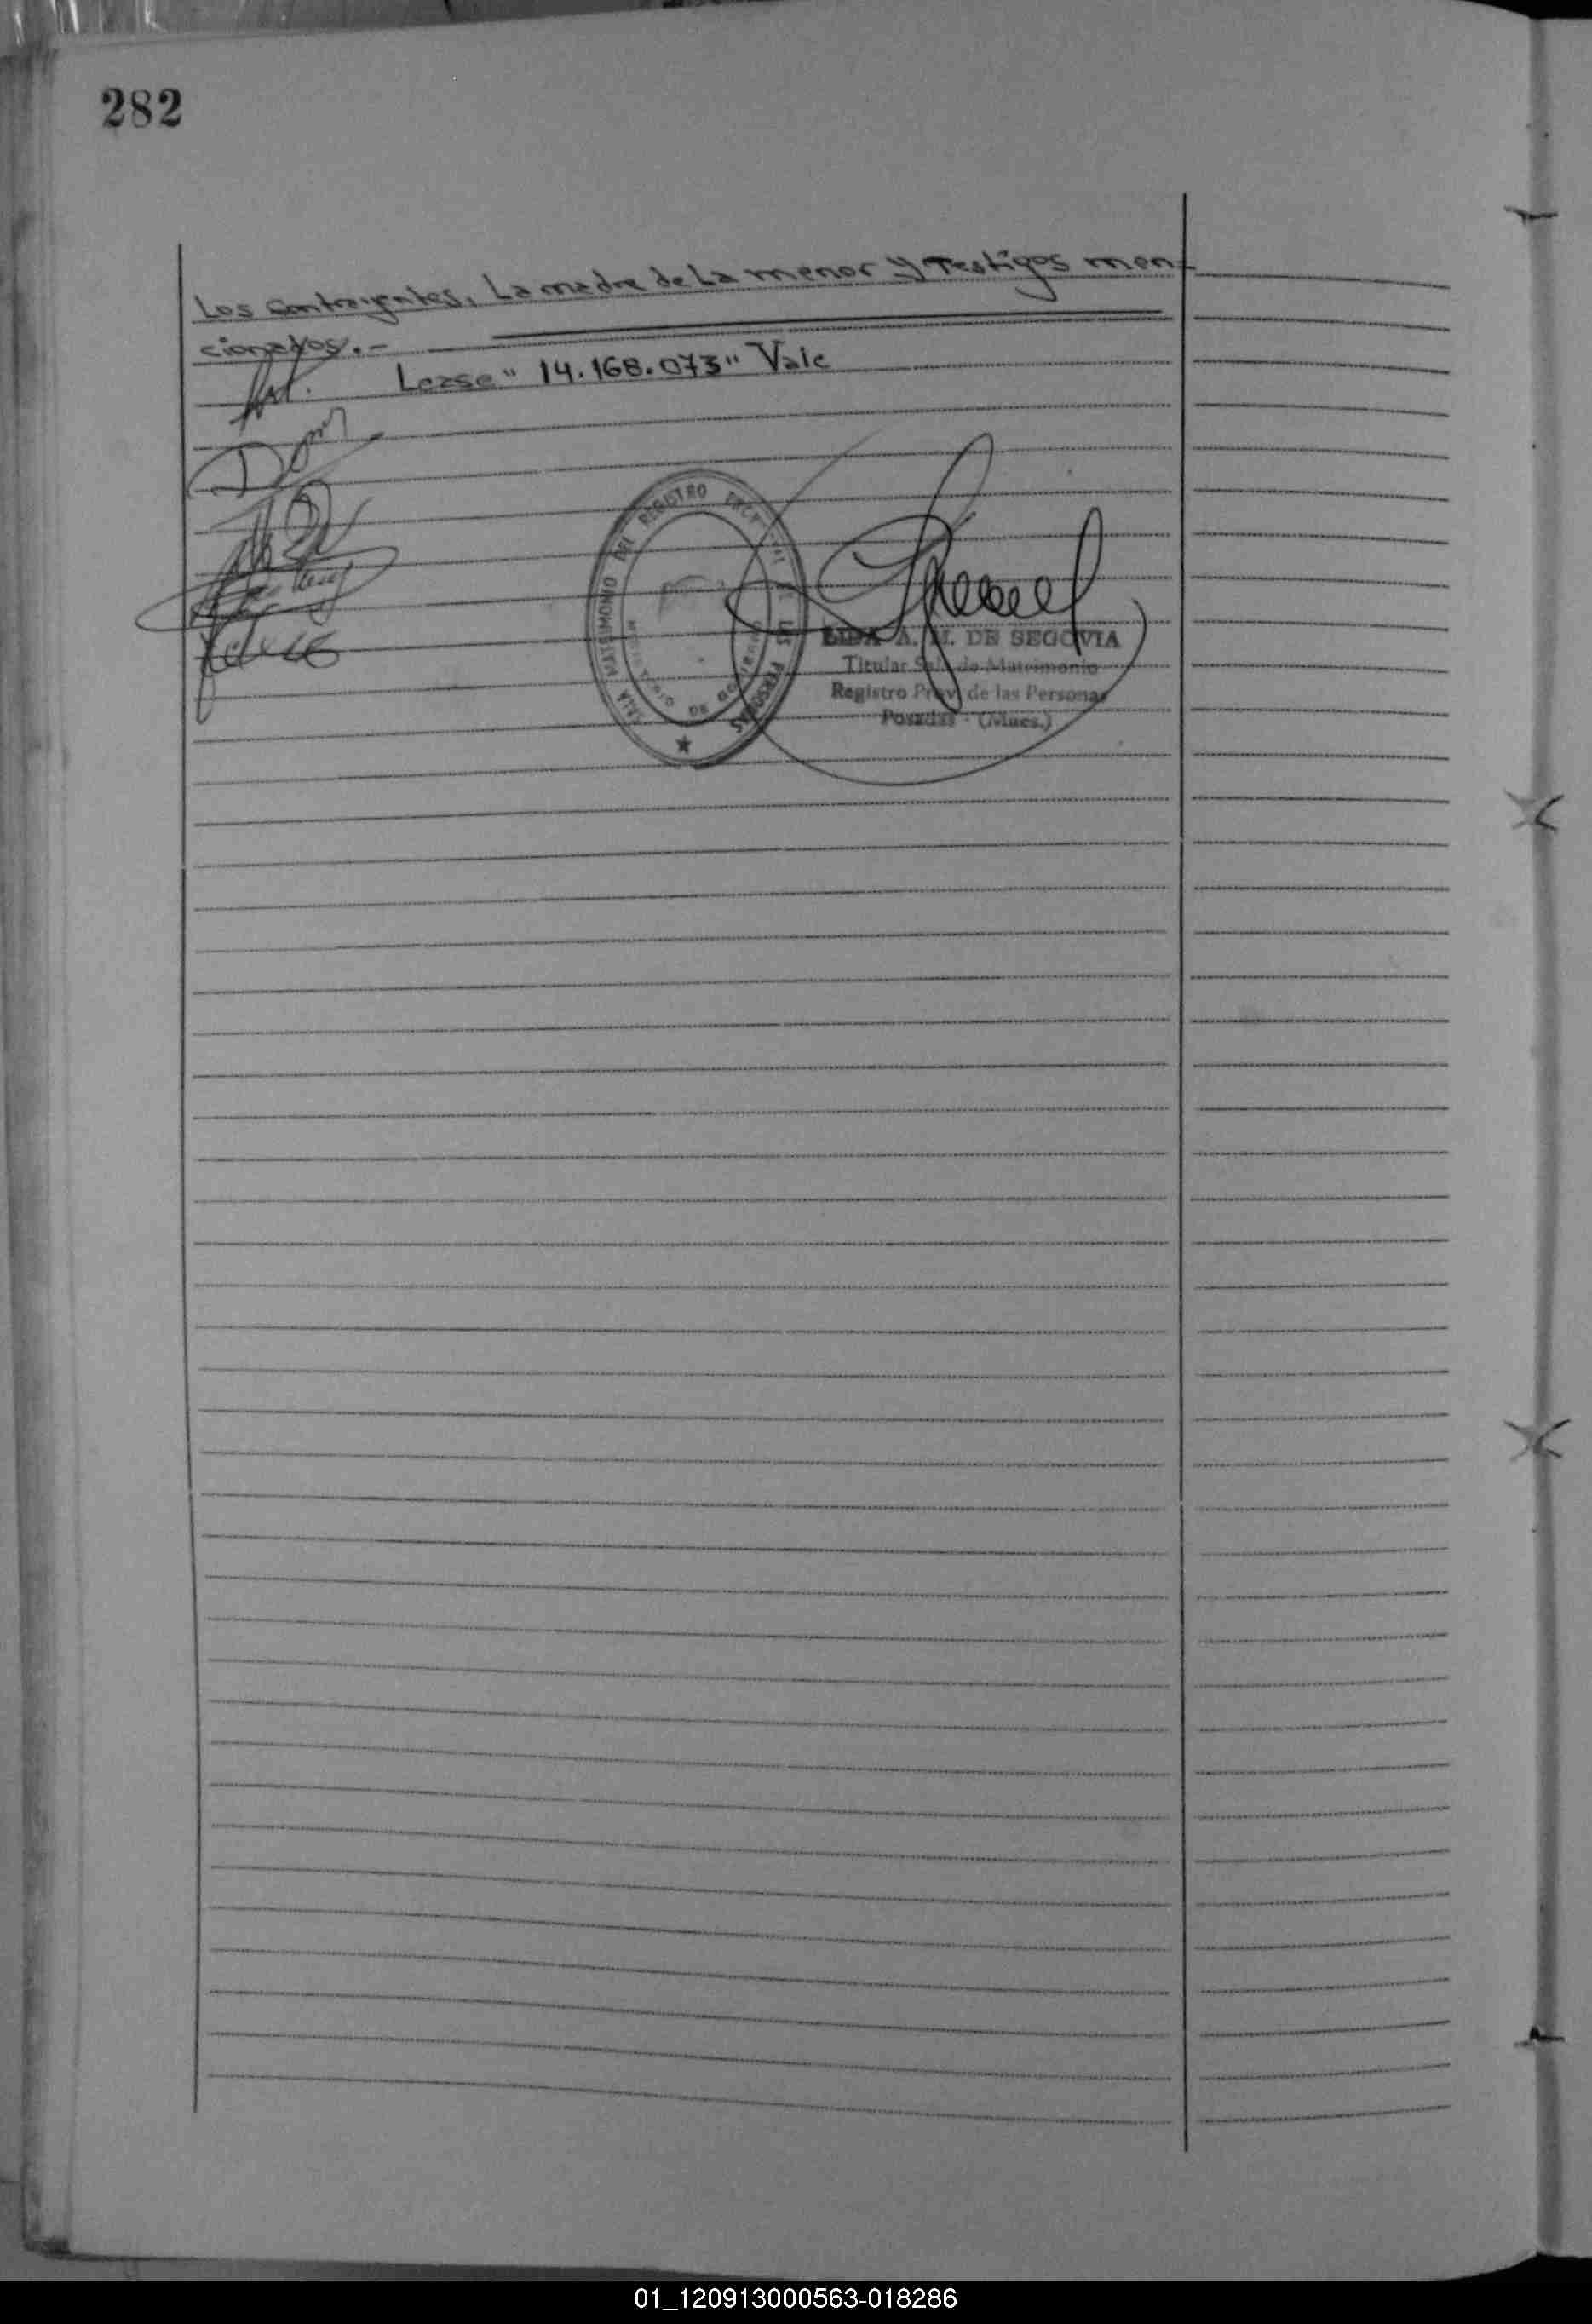 282
Los contrayentes, La madre de La menor y Testigos men-
cionados.-
Lease " 14.168.073" Vale
SALA MATRIMONIO DEL REGISTRO PROVINCIAL DE LAS PERSONAS
LIDA A. M. DE SEGOVIA
Titular Sala de Matrimonio
Registro Prov. de las Personas
Posadas - (Mnes.)
01_120913000563-018286